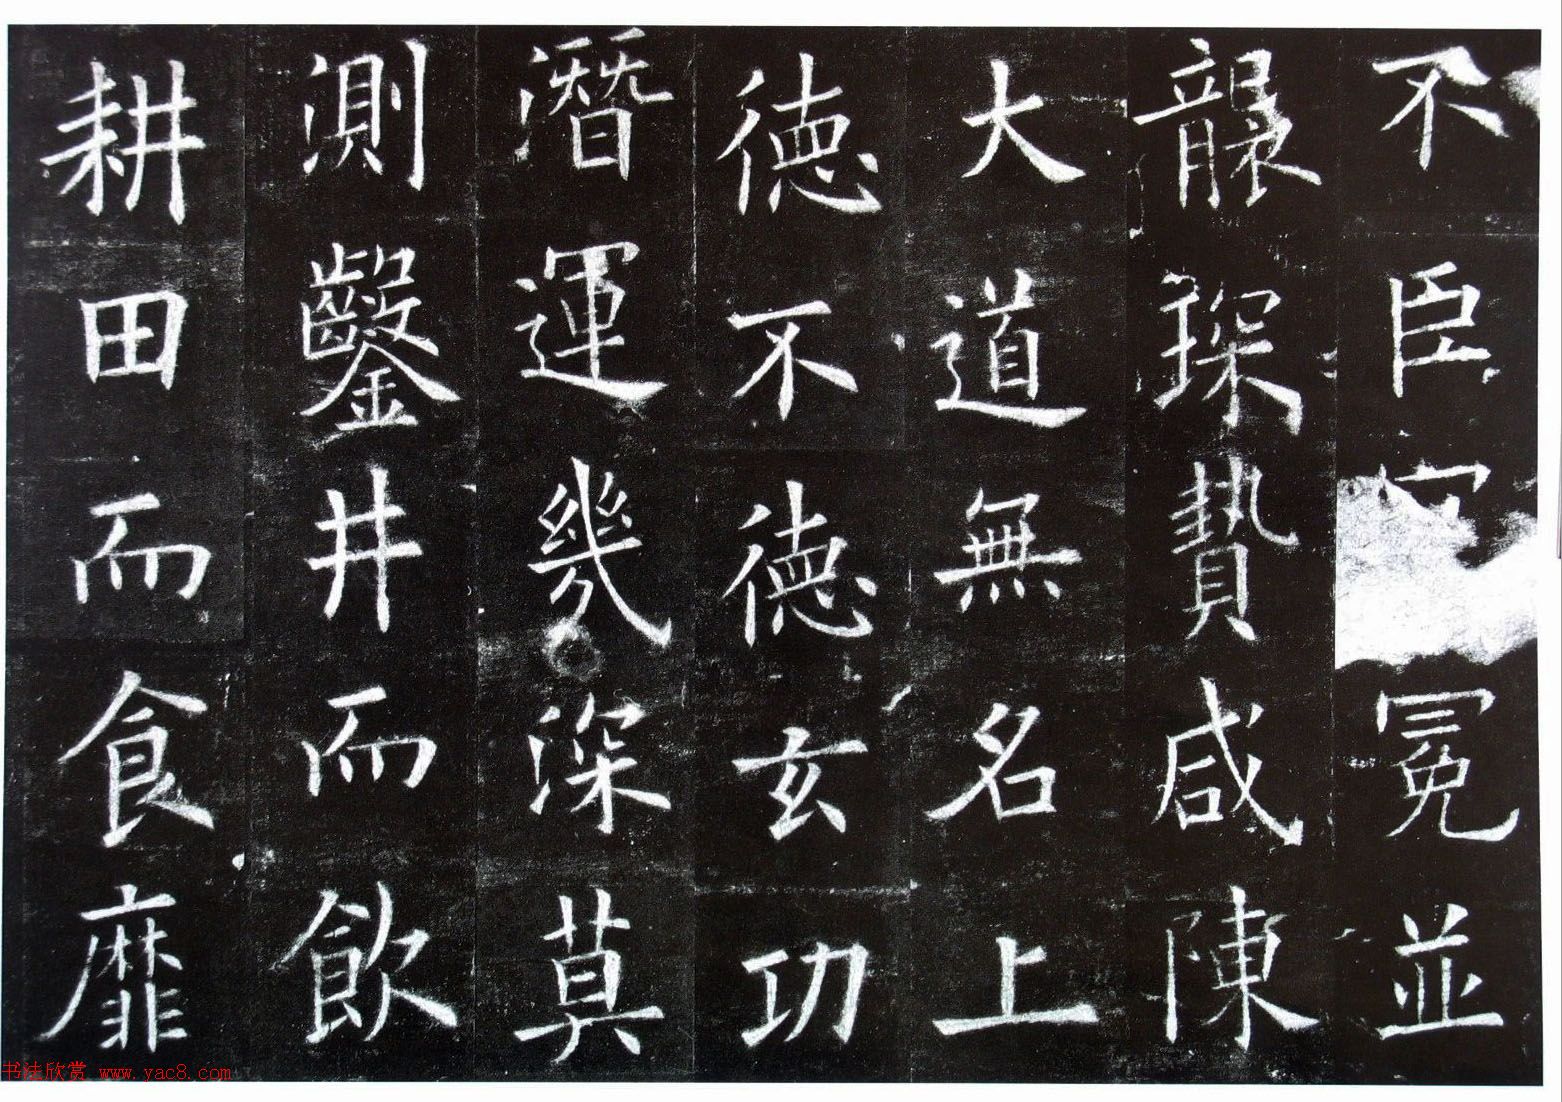 不臣冠冕並
襲琛贄咸陳
大道無名上
德不德玄功
潛運幾深莫
測鑿井而飲
耕田而食靡
书法欣赏 www.yac8.com